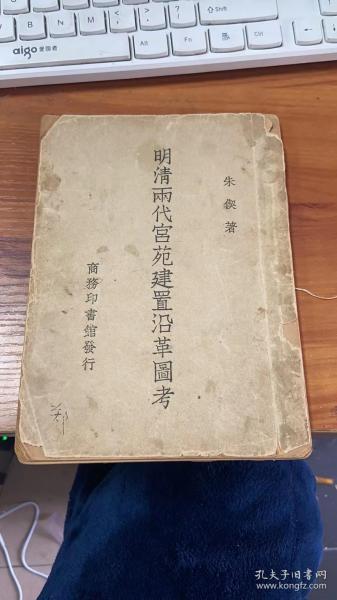 Shift
Alt
Fn
Ctrl
aigo 爱国者
朱偰著
明清兩代宮苑建置沿革圖考
商務印書館發行
孔夫子旧书网
www.kongfz.com